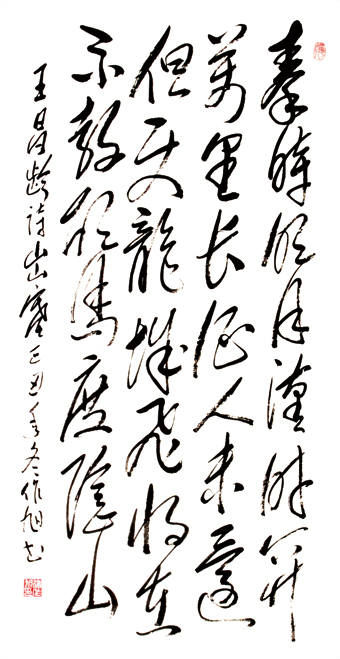 秦時明月漢時关
萬里长征人未還
但使龍城飛将在
不教胡馬度陰山
王昌龄詩出塞己丑年冬作旭书